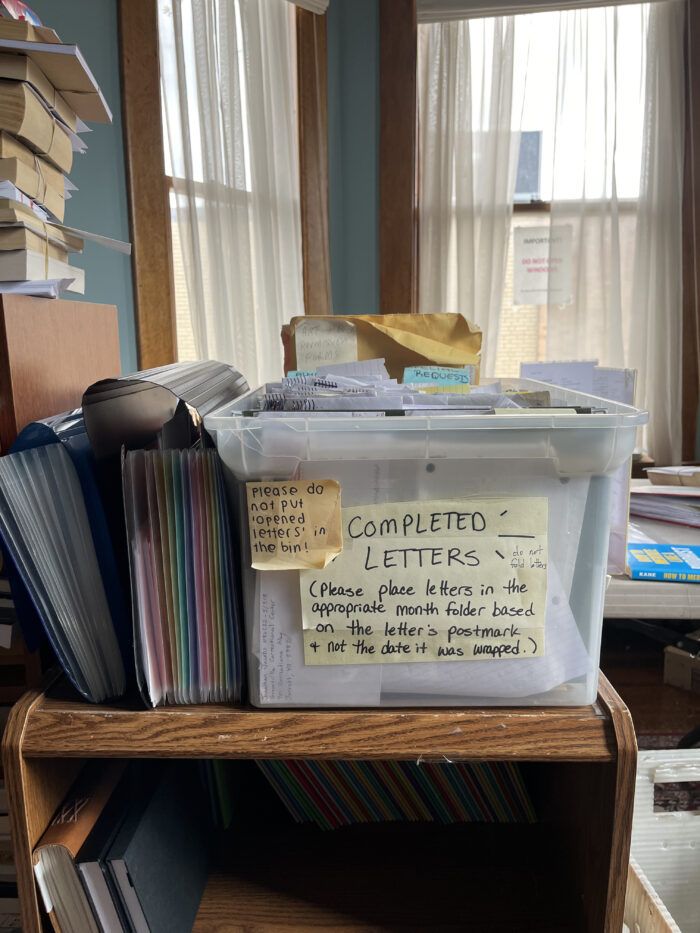 IMPORTANT
DO NOT OPEN
WINDOW
PERMISSION
FORMS
REQUESTS
Please do
not put
'opened
letters' in
the bin!
COMPLETED
LETTERS
do not
fold letters
(Please place letters in the
appropriate month folder based
on the letter's postmark
& not the date it was wrapped.)
KANE
HOW TO